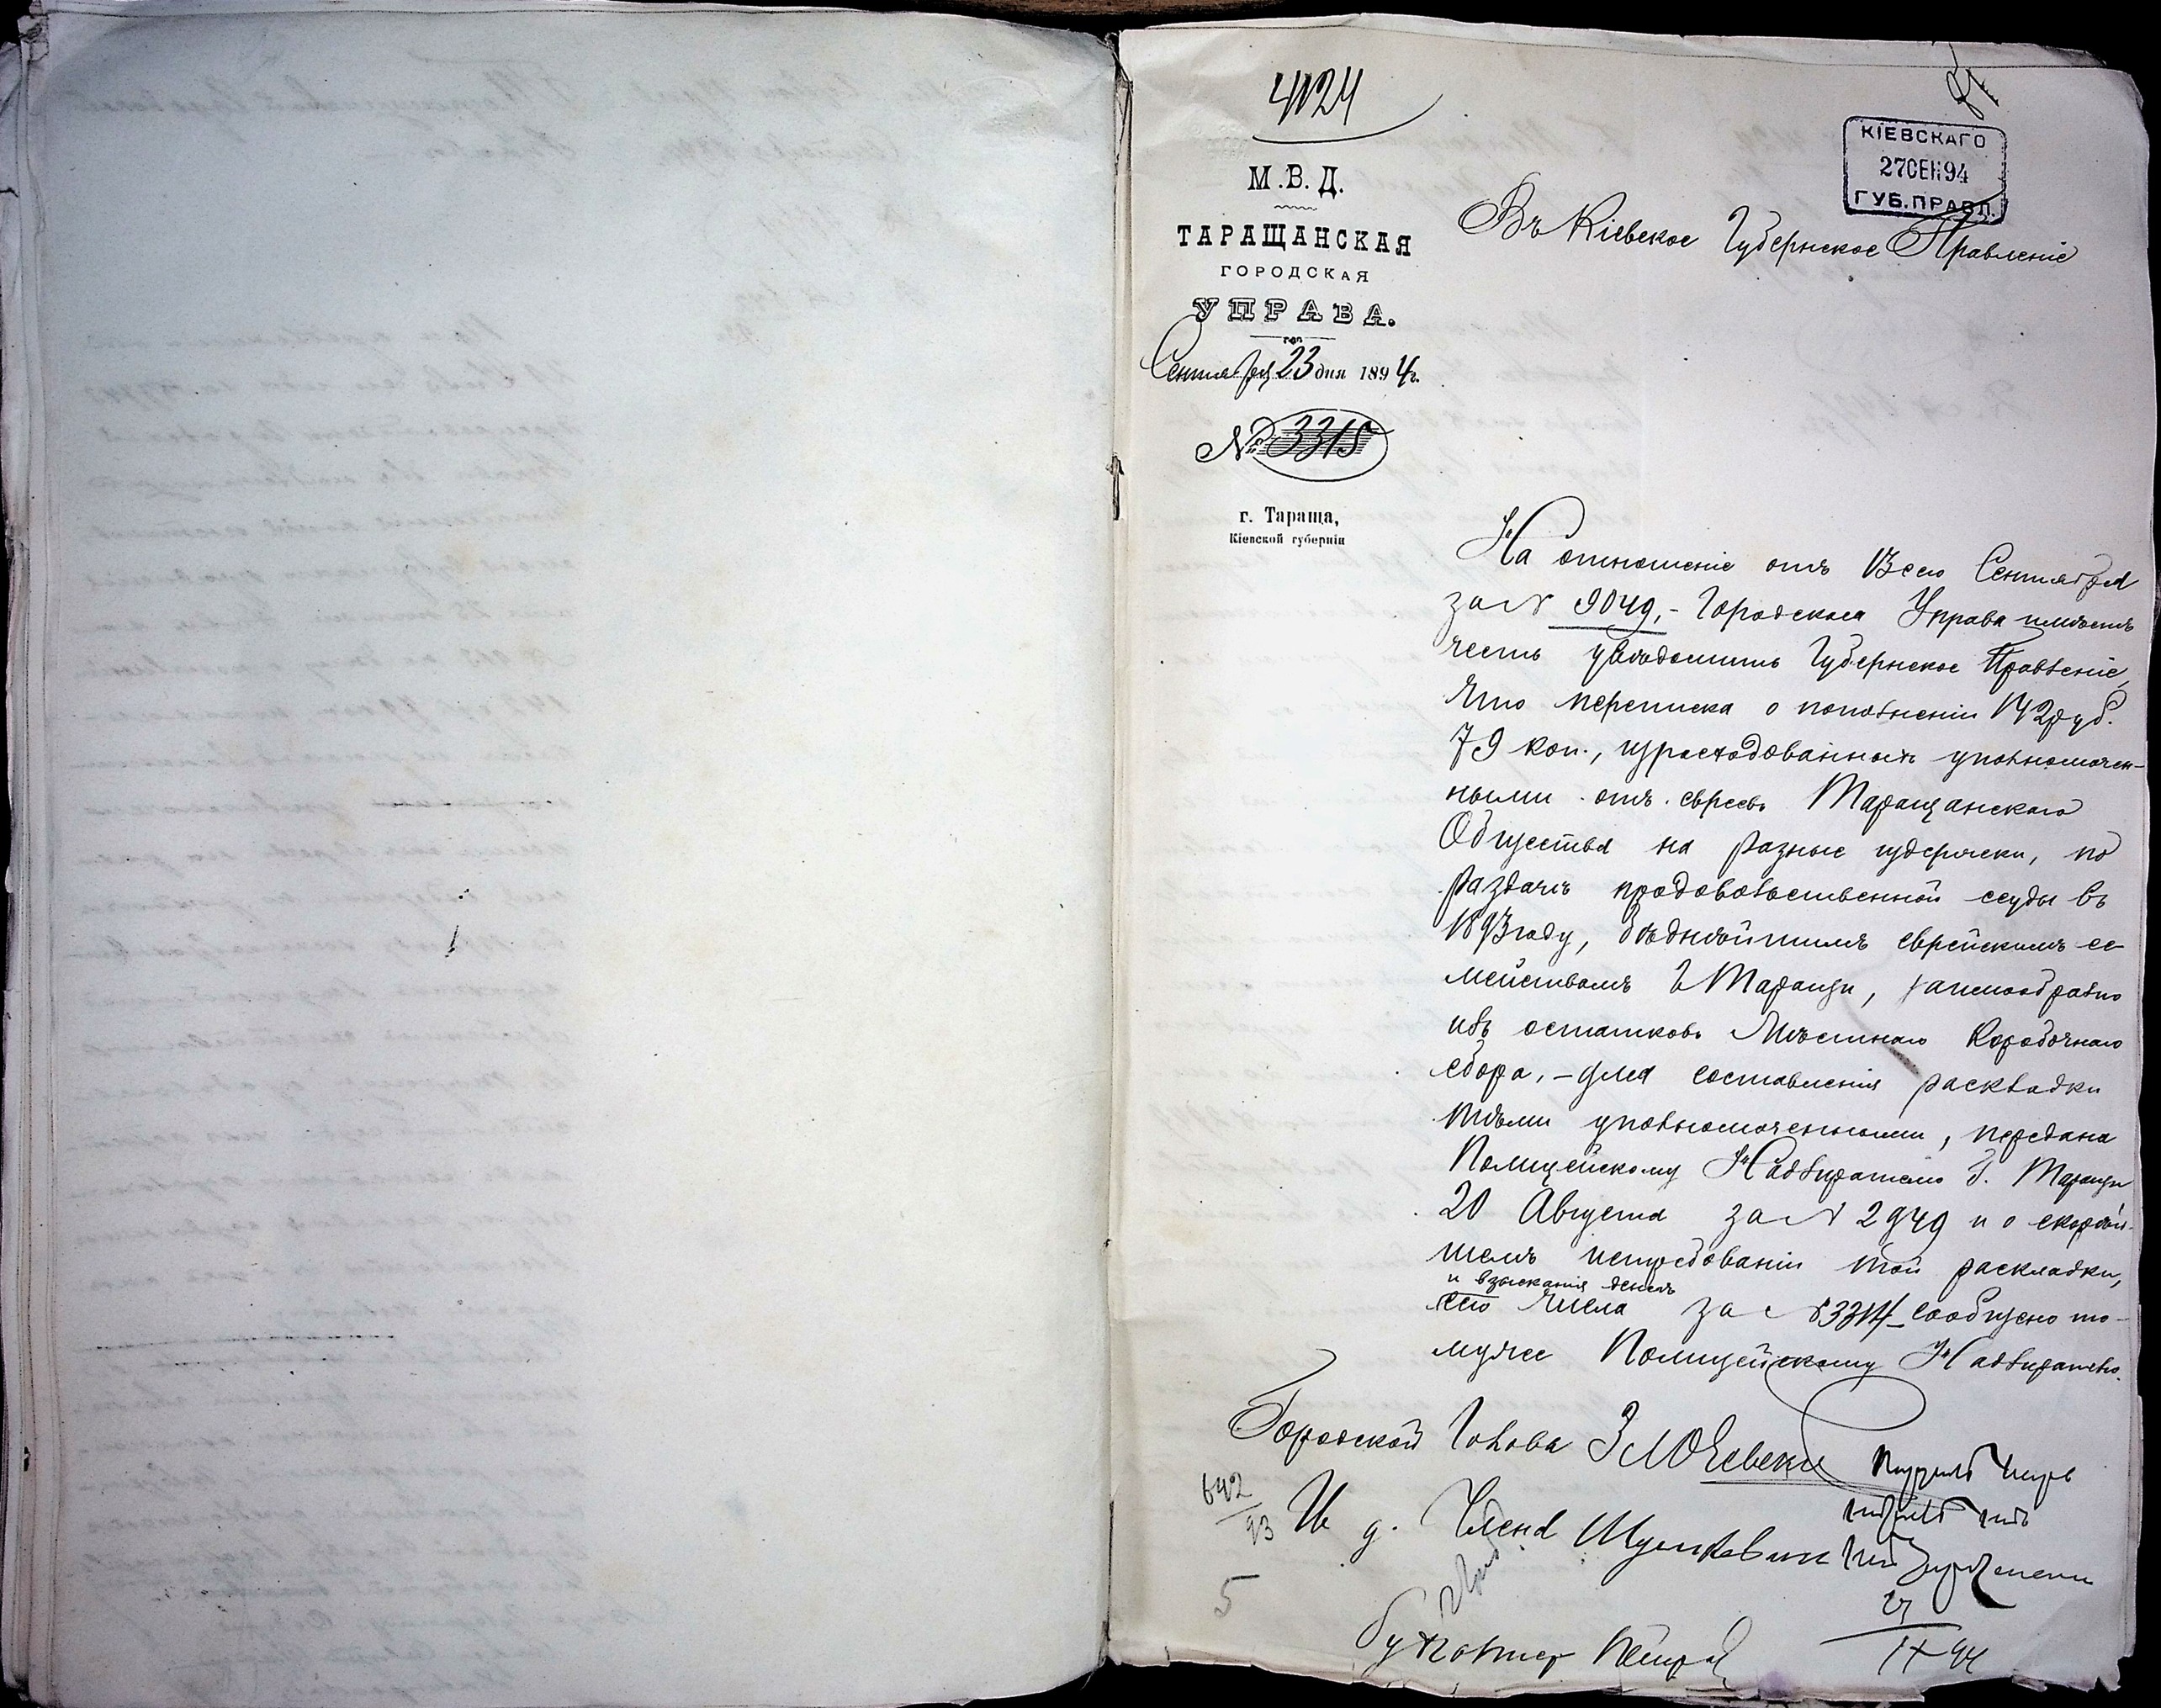 4124
КІЕВСКАГО
27 СЕН 94
ГУБ. ПРАВЛ.
М.В.Д.
ТАРАЩАНСКАЯ
ГОРОДСКАЯ
УПРАВА.
Сентября 23 дня 1894 г.
№ 3315
г. Тараща,
Кіевской губерніи
Въ Кіевское Губернское Правленіе
На отношеніе отъ 13 сего Сентября
за № 9049, - Городская Управа имѣетъ
честь увѣдомить Губернское Правленіе,
что переписка о пополненіи 142 руб.
79 коп., израсходованныхъ уполномочен-
ными отъ евреевъ Таращанскаго
Общества на разные издержки, по
раздачѣ продовольственной ссуды въ
1893 году, бѣднѣйшимъ еврейскимъ се-
мействамъ г. Таращи, заимообразно
изъ остатковъ Мѣстнаго Коробочнаго
сбора, - для составленія раскладки
тѣми уполномоченными, передана
Полицейскому Надзирателю г. Таращи
20 Августа за № 2949 и о скорѣй-
шемъ истребованіи той раскладки,
и взысканія денегъ
сего числа за № 3314 сообщено то-
муже Полицейскому Надзирателю.
Городской Голова
642
93
И д. Члена
5
Бухгалтер
IX 94